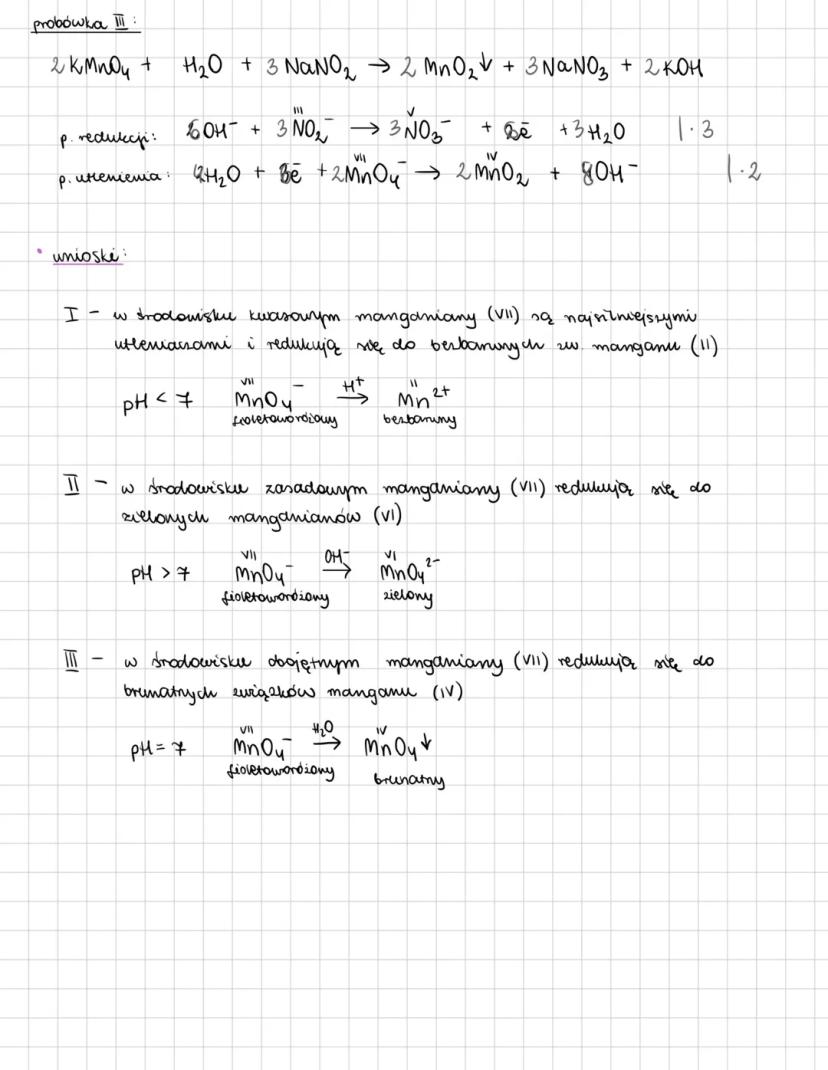 probówka III:
2 KMnO₄ + H₂O + 3 NaNO₂ → 2 MnO₂↓ + 3 NaNO₃ + 2 KOH
p. redukcji: 6OH⁻ + 3 NO₂⁻ → 3 NO₃⁻ + 6ē + 3 H₂O |·3
III V
p. utlenienia: 4H₂O + 6ē + 2 MnO₄⁻ → 2 MnO₂ + 8OH⁻ |·2
VII IV
• wnioski:
I - w środowisku kwasowym manganiany (VII) są najsilniejszymi
utleniaczami i redukują się do bezbarwnych zw. manganu (II)
VII H⁺ II
pH < 7 MnO₄⁻ → Mn²⁺
fioletoworóżowy bezbarwny
II - w środowisku zasadowym manganiany (VII) redukują się do
zielonych manganianów (VI)
VII OH⁻ VI
pH > 7 MnO₄⁻ → MnO₄²⁻
fioletoworóżowy zielony
III - w środowisku obojętnym manganiany (VII) redukują się do
brunatnych związków manganu (IV)
VII H₂O IV
pH = 7 MnO₄⁻ → MnO₄↓
fioletoworóżowy brunatny